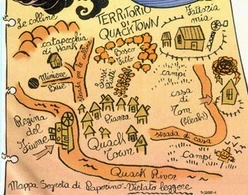 Le colline
TERRITORIO
QUACKTOWN
fattoria
mia
catapecchia
di Hank
Bosco
Fitto
Miniere
Blue
strada per le
campi
casa
di
Tom
Regina
del
Fiume
Piazza
Quack
Town
strada di casa
Campi
Quack River
Mappa Segreta di Paperino. Vietato leggere